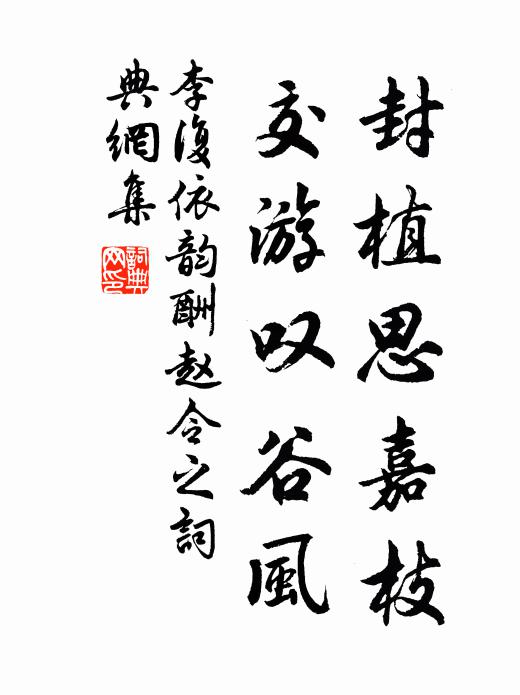 封植思嘉枝
交游叹谷風
李復依韵酬赵令之詞
典網集
詞典网印